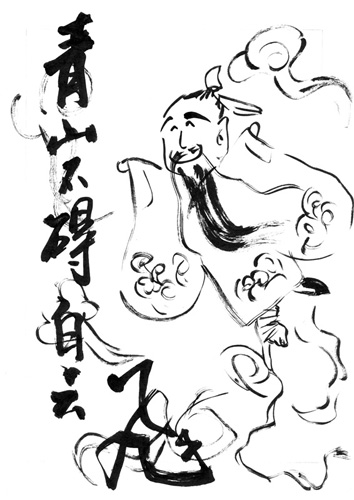 青山不碍白云飞